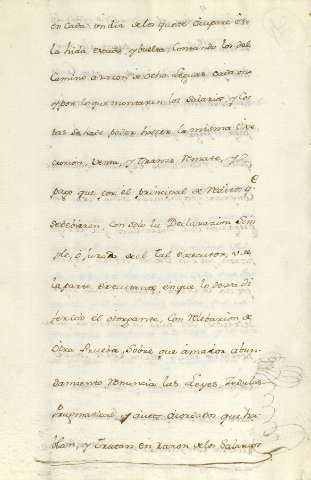 en cada un dia de los que se ocupare en
la hida estada y buelta, Contando los del
Camino a racon de ocho leguas cada uno
y por lo que montaren los Salarios y Cos
tas se hade poder hacer la misma Exe
cucion, Venta, y Trance Remate, y
pago que por el principal de Reditos q.e
se debieren, con solo la Declarazion Sim
ple, ó jurada de el tal executor, u de
la parte executante en que lo deja di
ferido el otorgante, con Relebazion de
otra Prueba, sobre que á maior abun-
damiento Renuncia las Leyes,
Pragmaticas y autos acordados que ha
blan, y Tratan en razon de los Salarios